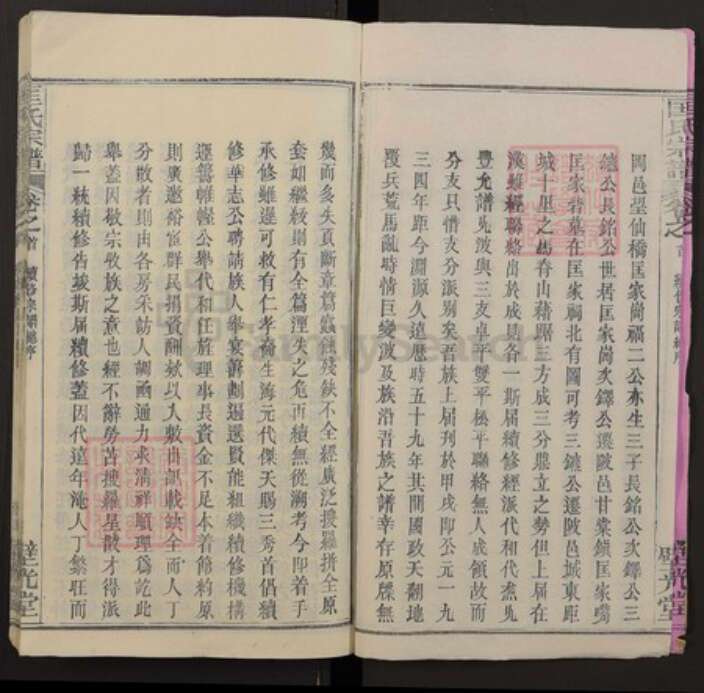 匡氏宗譜 卷之首 續修宗譜總序 壁光堂
岡邑望仙橋匡家崗福二公亦生三子長銘公次鐸公三
鏈公長銘公世居匡家崗次鐸公遷陂邑甘棠鎮匡家塆
匡家砦墓在匡家祠北有圖可考三鏈公遷陂邑城東距
城十里之馬脊山藉踞三方成三分鼎立之勢但上屆在
漢雖經聯絡尚於成見各一斯屆續修經派代和代焘先
豐允譜先波與三支卓平雙平松平聯絡無人成領故而
分支只惜支分派別矣吾族上屆刊於甲戌即公元一九
三四年距今淵源久遠歷時五十九年其間國政天翻地
覆兵荒馬亂時情巨變波及族沿吾族之譜幸存原牒無
幾而多失頁斷章篇蟲蝕殘缺不全經廣泛搜羅拼全原
套如繼敘則有全篇湮失之危再續無從溯考今卽着手
承修雖遲可救有仁孝裔生海元代傑天賜三秀首倡續
修華志公聘請族人舉宴籌劃遴選賢能組織續修機構
運籌帷幄公舉代和任旌理事長資金不足本着節約原
則廣邀裕宦群民捐資酬欸以人數由訊載缺全而人丁
分散者則由各房采訪人調函通力求清祥順理為訖此
舉蓋因敬宗敬族之意也經不辭勞苦搜羅星散才得派
歸一統續修告竣斯屆續修蓋因代遠年淹人丁繁旺而
匡氏宗譜 卷之首 續修宗譜總序 壁光堂
FamilySearch